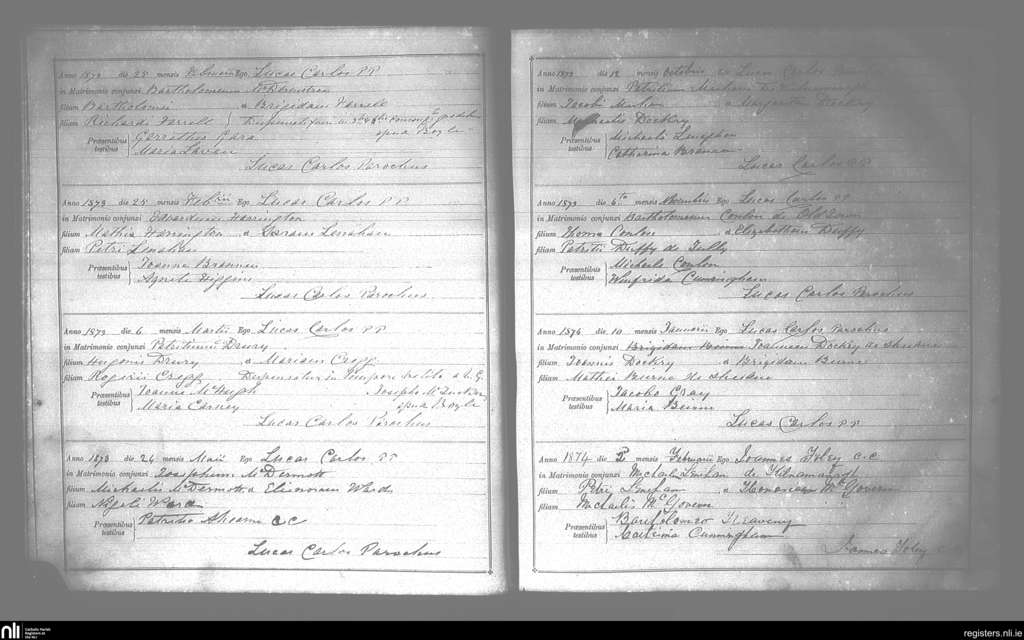 Anno 1873 die 25 mensis Februarii Ego Lucas Carlos P.P.
in Matrimonio conjunxi Bartholomeum McDermott
filium Bartholomei & Brigidam Farrell
filiam Richardi Farrell Dispensati fuere in
apud Boyle
Præsentibus testibus Gerrithus Gara
Maria Lavin
Lucas Carlos Parochus
Anno 1873 die 25 mensis Feb rii Ego Lucas Carlos P.P.
in Matrimonio conjunxi Edwardum Harrington
filium Mathia Harrington & Saram Lenahan
filiam Petri Lenahan
Præsentibus testibus Joanne Brennan
Agnete Higgins
Lucas Carlos Parochus
Anno 1873 die 6 mensis Martii Ego Lucas Carlos P.P.
in Matrimonio conjunxi Patritium Drury
filium Hugonis Drury & Mariam Cregg
filiam Rogerii Cregg Dispensatur in tempore
Præsentibus testibus Joanne McHugh Josepho
Maria Carney apud Boyle
Lucas Carlos Parochus
Anno 1873 die 24 mensis Maii Ego Lucas Carlos P.P.
in Matrimonio conjunxi Josephum McDermott
filium Michaelis McDermott & Elionoram Ward
filiam Nigeli Ward
Præsentibus testibus Patritio Ahearne C C
Lucas Carlos Parochus
Anno 1873 die 12 mensis Octobris Ego Lucas Carlos
in Matrimonio conjunxi Patritium Meehan de
filium Jacobi Meehan & Margaritam Dockry
filiam Dockry
Præsentibus testibus Michaele
Catharina Brennan
Lucas Carlos P.P.
Anno 1873 die 6to mensis Novembris Ego Lucas Carlos P.P.
in Matrimonio conjunxi Bartholomeum Conlon de
filium Thoma Conlon & Elizabetham Duffy
filiam Patritii Duffy de Tully
Præsentibus testibus Michaele Conlon
Winfrida Cunningham
Lucas Carlos Parochus
Anno 1874 die 10 mensis Januarii Ego Lucas Carlos Parochus
in Matrimonio conjunxi Brigidam Joannem Dockry de
filium Joannis Dockry & Brigidam Beirne
filiam Mathei Beirne de
Præsentibus testibus Jacobo Gray
Maria Beirne
Lucas Carlos P.P.
Anno 1874 die 3 mensis Februarii Ego Joannes Foley C.C.
in Matrimonio conjunxi Michael Linehan de Kilnamanagh
filium Petri Linehan & Honoriam McGovern
filiam Michaelis McGovern
Præsentibus testibus Bartholomeo Neaveny
Cunningham
James Foley C.C.
nli
Catholic Parish Registers at the NLI
registers.nli.ie